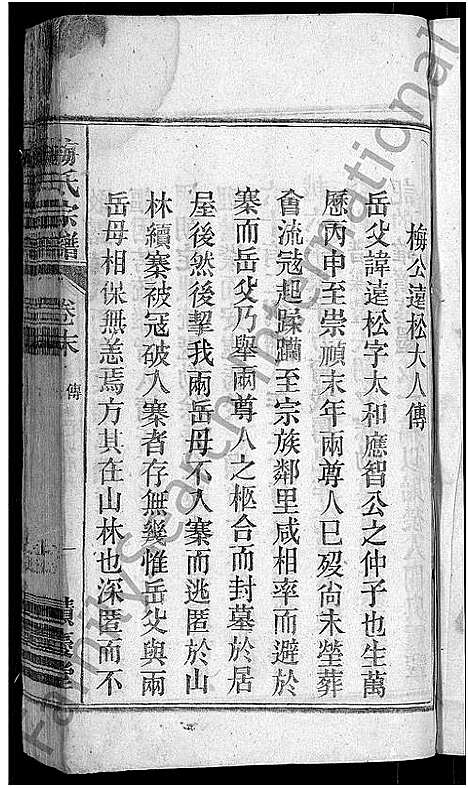 梅公達松大人傳
岳父諱達松字太和應智公之仲子也生萬
歷丙申至崇禎末年兩尊人已歿尚未塋葬
會流寇起蹂躪至宗族鄰里咸相率而避於
寨而岳父乃舉兩尊人之柩合而封墓於居
屋後然後挈我兩岳母不入寨而逃匿於山
林續寨被寇破入寨者存無幾惟岳父與兩
岳母相保無恙焉方其在山林也深匿而不
梅氏宗譜
卷末
傳
一
堂
FamilySearch International